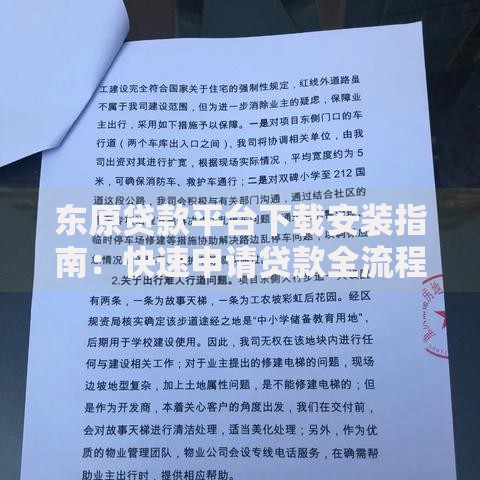 工建设完全符合国家关于住宅的强制性规定，红线外道路虽
不属于我司建设范围，但为进一步消除业主的疑虑，保障业
主出行，采用如下措施予以保障。一是对项目东侧门口的车
行道（两个车库出入口之间），我司将协调相关单位，由我
司出资对其进行扩宽，根据现场实际情况，平均宽度约为 5
米，可确保消防车、救护车通行；二是对双碑小学至 212 国
道这段公路，我司会积极与有关部门沟通，通过结合社区的
东原贷款平台下载安装指
南：快速申请贷款全流程
临时停车场修建等措施协助解决路边乱停车问题，以确保
2.关于出行难人行道问题。项目东侧
有两条，一条为故事天梯，一条为工农坡彩虹后花园。经区
规资局核实确定该步道途经之地是“中小学储备教育用地”，
后期用于学校建设使用。因此，我司无权在该地块内进行任
何与建设相关工作；对于业主提出的修建电梯的问题，现场
边坡地型复杂，加上土地属性问题，是不能修建电梯的；但
是作为开发商，本着关心客户的角度出发，我们在交付前，
会对故事天梯进行清洁处理，适当美化处理；另外，作为优
质的物业管理团队，物业公司会设专线电话服务，在确需帮
助业主出行时，提供相应帮助。